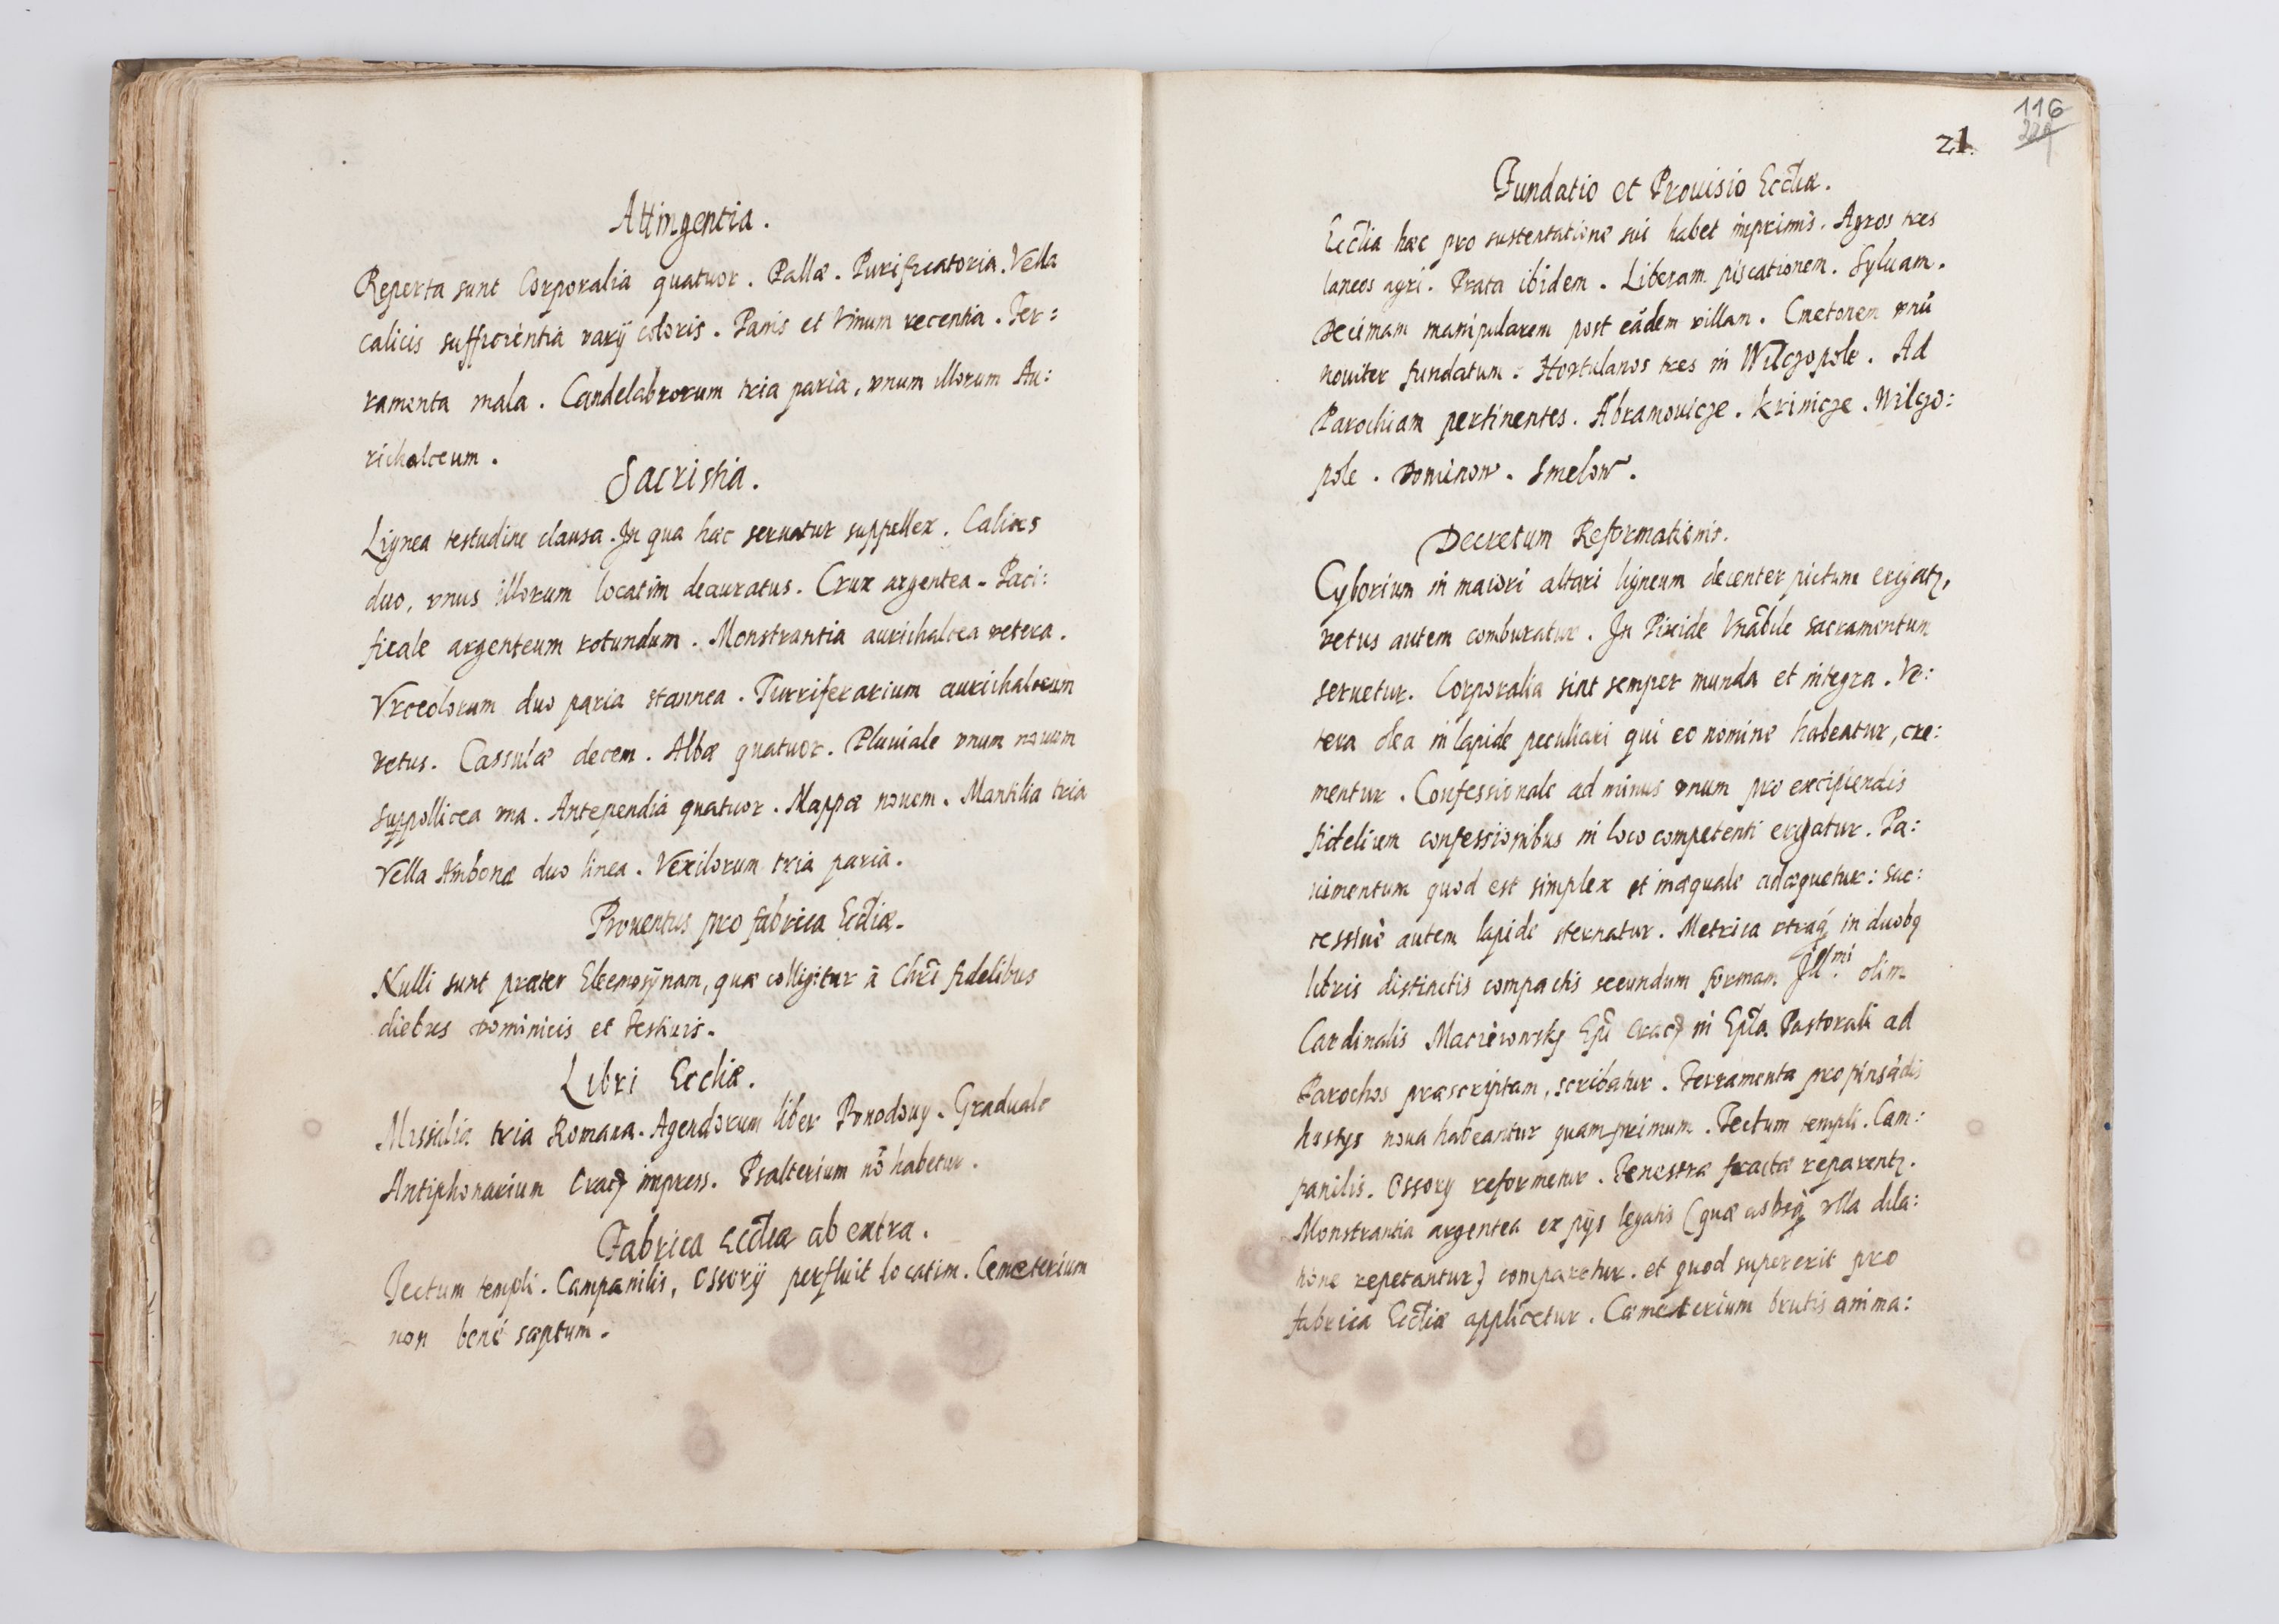 Attingentia.
Reperta sunt Corporalia quatuor. Pallæ. Purificatoria. Vella
calicis sufficientia varij coloris. Panis et Vinum recentia. Fer:
ramenta mala. Candelabrorum tria paria, vnum illorum Au:
richalceum.
Sacristia.
Lignea testudine clausa. In qua hæc seruatur suppellex. Calices
duo, vnus illorum locatim deauratus. Crux argentea. Paci:
ficale argenteum rotundum. Monstrantia aurichalcea vetera.
Vrceolorum duo paria stannea. Turriferarium aurichalceum
vetus. Cassulæ decem. Albæ quatuor. Pluuiale vnum nouum
Suppollicea vna. Antependia quatuor. Mappæ nouem. Mantilia tria
Vella Ambonæ duo linea. Vexilorum tria paria.
Prouentus pro fabrica Eccliæ.
Nulli sunt præter Eleemosÿnam, quæ colligitur à Chri fidelibus
diebus Dominicis et Festiuis.
Libri Eccliæ.
Missalia tria Romana. Agendorum liber Ponodowy. Graduale
Antiphonarium Crac impress. Psalterium nõ habetur.
Fabrica Eccliæ ab extra.
Tectum templi. Campanilis, Ossorij perfluit locatim. Cemeterium
non bené sæptum.
116
21.
Fundatio et Prouisio Eccliæ.
Ecclia hæc pro sustentatione sui habet inprimis. Agros tres
laneos agri. Prata ibidem. Liberam piscationem. Syluam.
Decimam manipularem post eãdem villam. Cmetonem vnũ
nouiter fundatum. Hortulanos tres in Wilczopole. Ad
Parochiam pertinentes. Abramouicze. Krinicze. Wilczo:
pole. Dominow. Smelow.
Decretum Reformationis.
Cyborium in maiori altari ligneum decenter pictum erigatz,
vetus autem comburatur. In Pixide Vnãbile sacramentum
seruetur. Corporalia sint semper munda et integra. Ve:
tera olea in lapide peculiari qui eo nomine habeatur, cre:
mentur. Confessionale ad minus vnum pro excipiendis
fidelium confessionibus in loco competenti erigatur. Pa:
uimentum quod est simplex et inæquale adæquetur: suc:
cessiuè autem lapide sternatur. Metrica vtraq in duobq
libris distinctis compactis secundum formam Ill.mi olim
Cardinalis Macieiowsky Epi Crac in Epla Pastorali ad
Parochos præscriptam, scribatur. Ferramenta pro pinsãdis
hostys noua habeantur quam primum. Tectum templi. Cam:
panilis. Ossory reformetur. Fenestræ fractæ reparentz.
Monstrantia argentea ex pijs legatis (quæ absq vlla dila:
tione repetantur) comparetur. et quod supererit pro
fabrica Eccliæ applicetur. Cæmeterium brutis anima: